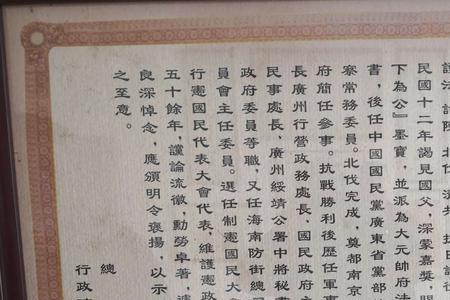 法、討陳、北伐、清
民國十二年謁見國父，深蒙嘉獎，
下為公』墨寶，並派為大元帥府法
書，後任中國國民黨廣東省黨部
察常務委員。北伐完成，奠都南京
府簡任參事。抗戰勝利後歷任軍事
長廣州行營政務處長、國民政府主
民事處長，廣州綏靖公署中將秘書
政府委員等職，又任海南防衛總司
員會主任委員。選任制憲國民大會
行憲國民代表大會代表，維護憲政
五十餘年，讜論流徽，勳勞卓著，遽
良深悼念，應頒明令褒揚，以示
之至意。
總
行政